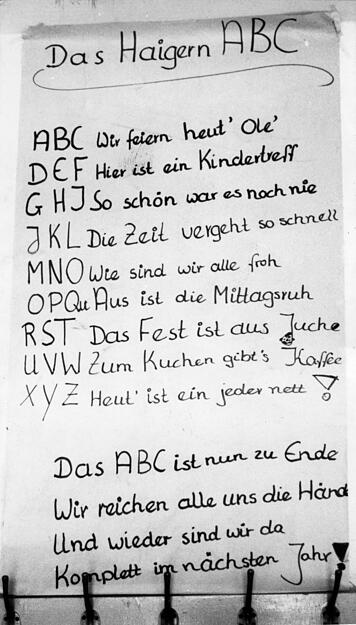 Das Haigern ABC
ABC Wir feiern heut' Ole'
DEF Hier ist ein Kindertreff
GHJ So schön war es noch nie
JKL Die Zeit vergeht so schnell
MNO Wie sind wir alle froh
OPQu Aus ist die Mittagsruh
RST Das Fest ist aus Juche
UVW Zum Kuchen gibt's Kaffee
XYZ Heut' ist ein jeder nett!
Das ABC ist nun zu Ende
Wir reichen alle uns die Händ
Und wieder sind wir da
Komplett im nächsten Jahr!